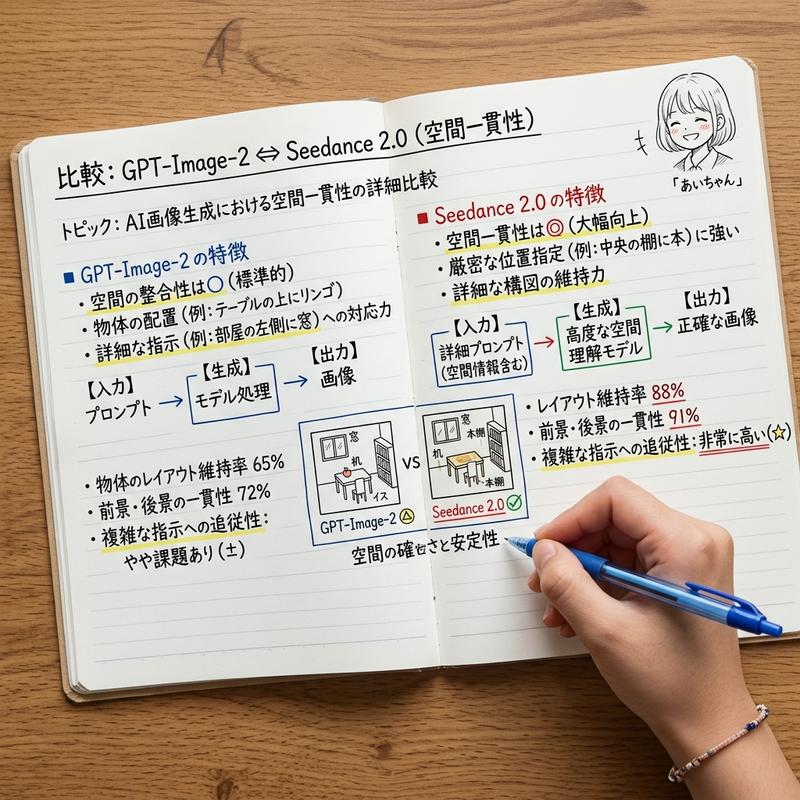 比較: GPT-Image-2 ⇔ Seedance 2.0 (空間一貫性)
トピック: AI画像生成における空間一貫性の詳細比較
■ GPT-Image-2の特徴
・空間の整合性は○ (標準的)
・物体の配置 (例: テーブルの上にリンゴ)
・詳細な指示 (例: 部屋の左側に窓) への対応力
【入力】
プロンプト
→
【生成】
モデル処理
→
【出力】
画像
・物体のレイアウト維持率 65%
・前景・後景の一貫性 72%
・複雑な指示への追従性:
やや課題あり (±)
窓
机
イス
GPT-Image-2
VS
窓
本棚
机
本棚
Seedance 2.0
空間の確さと安定性
「あいちゃん」
■ Seedance 2.0の特徴
・空間一貫性は◎ (大幅向上)
・厳密な位置指定 (例: 中央の棚に本) に強い
・詳細な構図の維持力
【入力】
詳細プロンプト
(空間情報含む)
→
【生成】
高度な空間
理解モデル
→
【出力】
正確な画像
・レイアウト維持率 88%
・前景・後景の一貫性 91%
・複雑な指示への追従性: 非常に高い(☆)